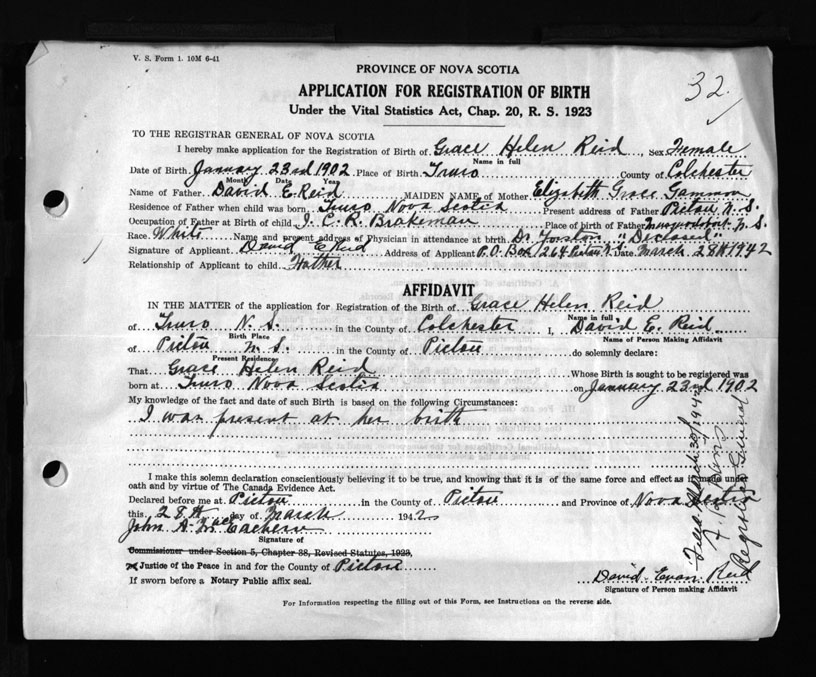 V. S. Form 1. 10M 6-41
PROVINCE OF NOVA SCOTIA
APPLICATION FOR REGISTRATION OF BIRTH
32.
Under the Vital Statistics Act, Chap. 20, R. S. 1923
TO THE REGISTRAR GENERAL OF NOVA SCOTIA
I hereby make application for the Registration of Birth of Grace Helen Reid, Sex Female
Name in full
Date of Birth January 23rd 1902 Place of Birth Truro County of Colchester
Month Date Year
Name of Father David E. Reid MAIDEN NAME of Mother Elizabeth Grace Gammon
Residence of Father when child was born Truro Nova Scotia Present address of Father Pictou N. S.
Occupation of Father at Birth of child I. C. R. Brakeman Place of birth of Father N. S.
Race White Name and present address of Physician in attendance at birth Dr "Deceased"
Signature of Applicant David E Reid Address of Applicant P.O. Box 1264 Pictou N.S. Date March 28th 1942
Relationship of Applicant to child Father
AFFIDAVIT
IN THE MATTER of the application for Registration of the Birth of Grace Helen Reid
Name in full
of Truro N. S. in the County of Colchester I, David E. Reid
Birth Place Name of Person Making Affidavit
of Pictou N. S. in the County of Pictou do solemnly declare:
Present Residence
That Grace Helen Reid Whose Birth is sought to be registered was
born at Truro Nova Scotia on January 23rd 1902
My knowledge of the fact and date of such Birth is based on the following Circumstances:
I was present at her birth
I make this solemn declaration conscientiously believing it to be true, and knowing that it is of the same force and effect as if made under
oath and by virtue of The Canada Evidence Act.
Declared before me at Pictou in the County of Pictou and Province of Nova Scotia
this 28th day of March 1942
John A. Mac Eachern
Signature of
Commissioner under Section 5, Chapter 38, Revised Statutes, 1923,
Justice of the Peace in and for the County of Pictou
If sworn before a Notary Public affix seal.
David Evan Reid
Signature of Person making Affidavit
For Information respecting the filling out of this Form, see Instructions on the reverse side.
Filed March 30/1942
Registrar General